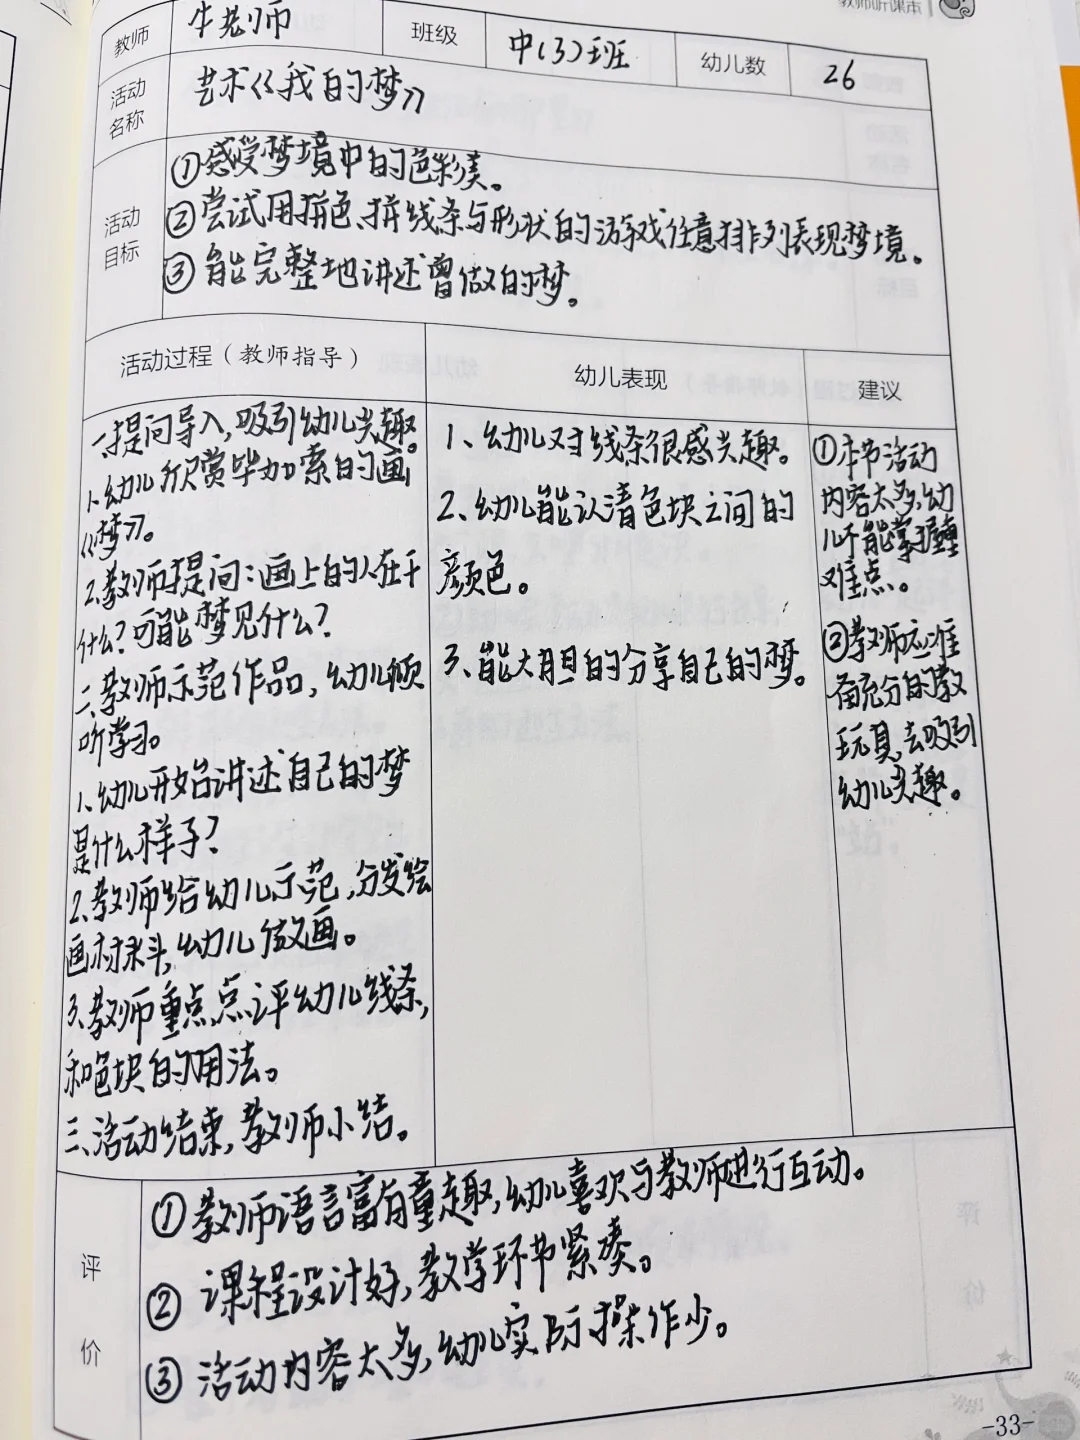 教师听课本
教师 牛老师 班级 中(3)班 幼儿数 26
活动名称 艺术《我的梦》
活动目标
①感受梦境中的色彩美。
②尝试用拼色、拼线条与形状的游戏任意排列表现梦境。
③能完整地讲述曾做的梦。
活动过程（教师指导） 幼儿表现 建议
一、提问导入,吸引幼儿兴趣。
1、幼儿欣赏毕加索的画
《梦》。
2、教师提问:画上的人在干
什么?可能梦见什么?
二、教师示范作品,幼儿倾
听学习。
1、幼儿开始讲述自己的梦
是什么样子?
2、教师给幼儿示范,分发绘
画材料,幼儿做画。
3、教师重点点评幼儿线条,
和色块的用法。
三、活动结束,教师小结。
1、幼儿对线条很感兴趣。
2、幼儿能认清色块之间的
颜色。
3、能大胆的分享自己的梦。
①本节活动
内容太多,幼
儿不能掌握重
难点。
②教师应准
备充分的教
玩具,去吸引
幼儿兴趣。
评价
①教师语言富有童趣,幼儿喜欢与教师进行互动。
②课程设计好,教学环节紧凑。
③活动内容太多,幼儿实际操作少。
-33-